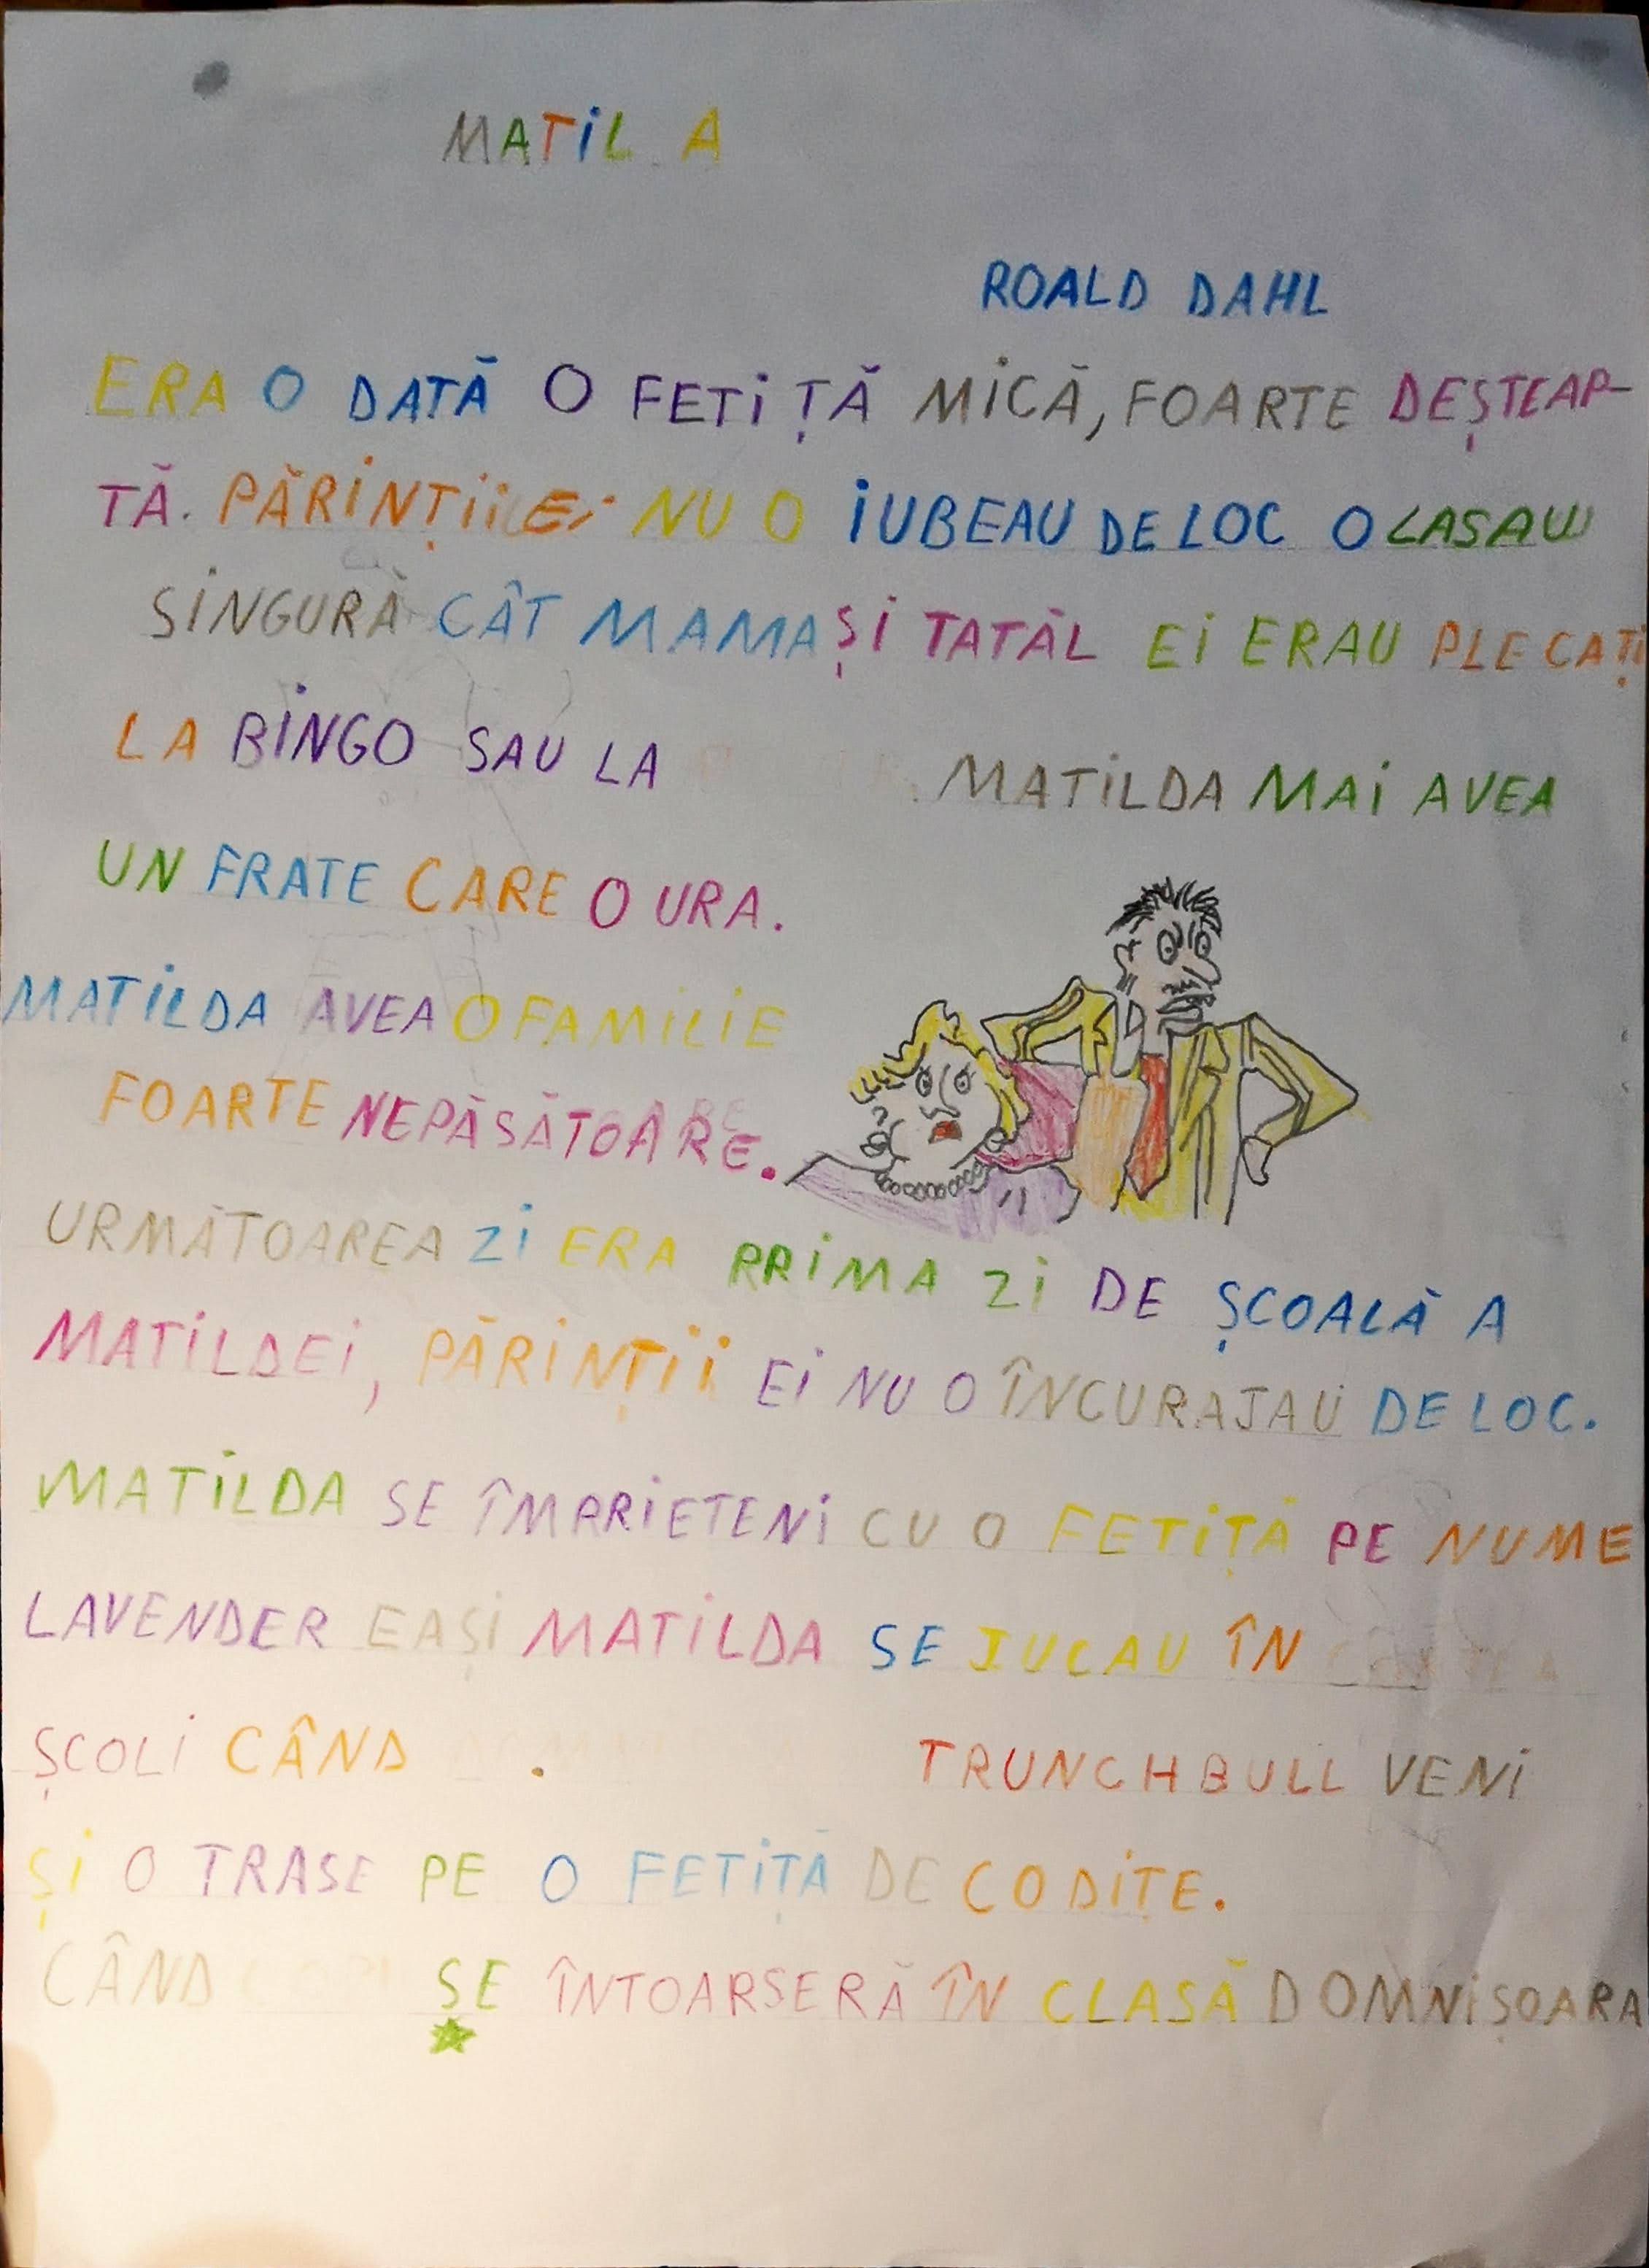 MATIL A
ROALD DAHL
ERA O DATĂ O FETIȚĂ MICĂ, FOARTE DEȘTEAP-
TĂ. PĂRINȚII EI NU O IUBEAU DE LOC O LASAU
SINGURĂ CÂT MAMA ȘI TATĂL EI ERAU PLECAȚI
LA BINGO SAU LA . MATILDA MAI AVEA
UN FRATE CARE O URA.
MATILDA AVEA O FAMILIE
FOARTE NEPĂSĂTOARE.
URMĂTOAREA ZI ERA PRIMA ZI DE ȘCOALĂ A
MATILDEI, PĂRINȚII EI NU O ÎNCURAJAU DE LOC.
MATILDA SE ÎMPRIETENI CU O FETIȚĂ PE NUME
LAVENDER EA ȘI MATILDA SE JUCAU ÎN
ȘCOLI CÂND . TRUNCHBULL VENI
ȘI O TRASE PE O FETIȚĂ DE CODIȚE.
CÂND SE ÎNTOARSERĂ ÎN CLASĂ DOMNIȘOARA